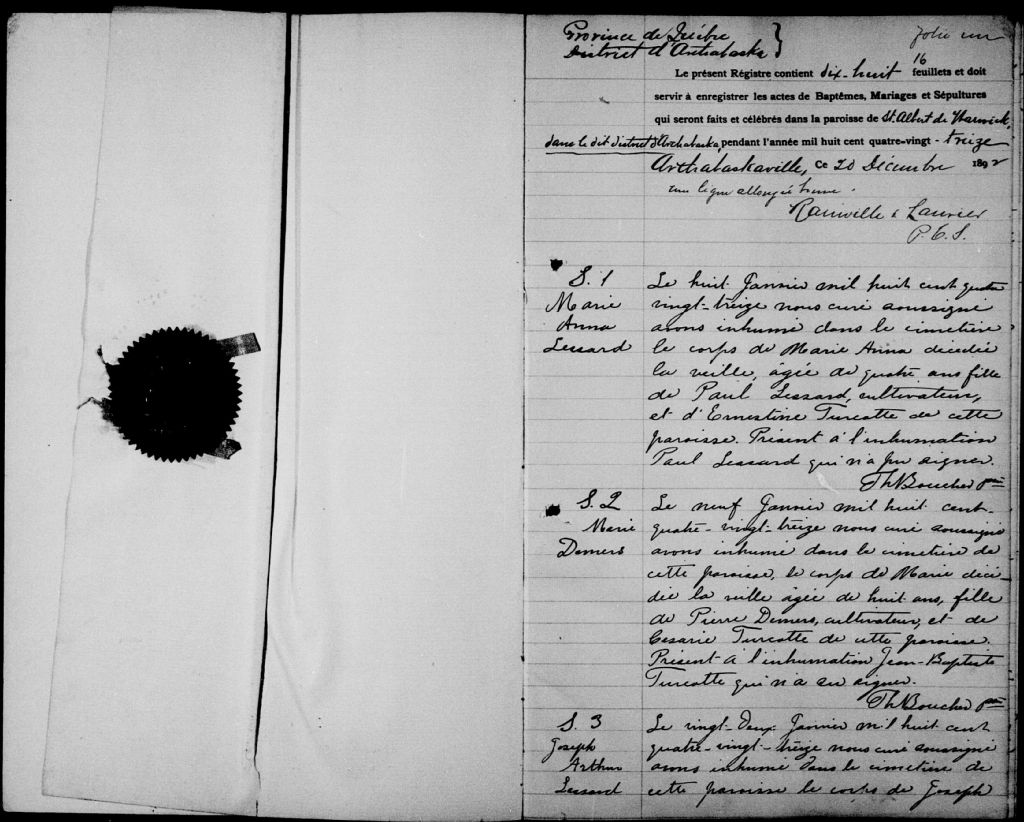 Province de Québec
District d'Arthabaska }
folio un
Le présent Régistre contient dix-huit 16 feuillets et doit
servir à enregistrer les actes de Baptêmes, Mariages et Sépultures
qui seront faits et célébrés dans la paroisse de St. Albert de Warwick,
dans le dit district d'Arthabaska, pendant l'année mil huit cent quatre-vingt-treize
Arthabaskaville, Ce 20 Décembre 1892
une ligne allongée bonne.
Rainville & Laurier
P. C. S.
S. 1
Marie
Anna
Lessard
Le huit Janvier mil huit cent quatre
vingt-treize nous curé soussigné
avons inhumé dans le cimetière
le corps de Marie Anna décédée
la veille, agée de quatre ans fille
de Paul Lessard, cultivateur,
et d'Ernestine Turcotte de cette
paroisse. Présent à l'inhumation
Paul Lessard qui n'a pu signer.
Th Boucher ptre
S. 2
Marie
Demers
Le neuf Janvier mil huit cent-
quatre-vingt-treize nous curé soussigné
avons inhumé dans le cimetière de
cette paroisse, le corps de Marie décé-
dée la veille agée de huit ans, fille
de Pierre Demers, cultivateur, et de
Cesarie Turcotte de cette paroisse.
Présent à l'inhumation Jean-Baptiste
Turcotte qui n'a su signer.
Th Boucher ptre
S. 3
Joseph
Arthur
Lessard
Le vingt-deux Janvier mil huit cent
quatre-vingt-treize nous curé soussigné
avons inhumé dans le cimetière de
cette paroisse le corps de Joseph